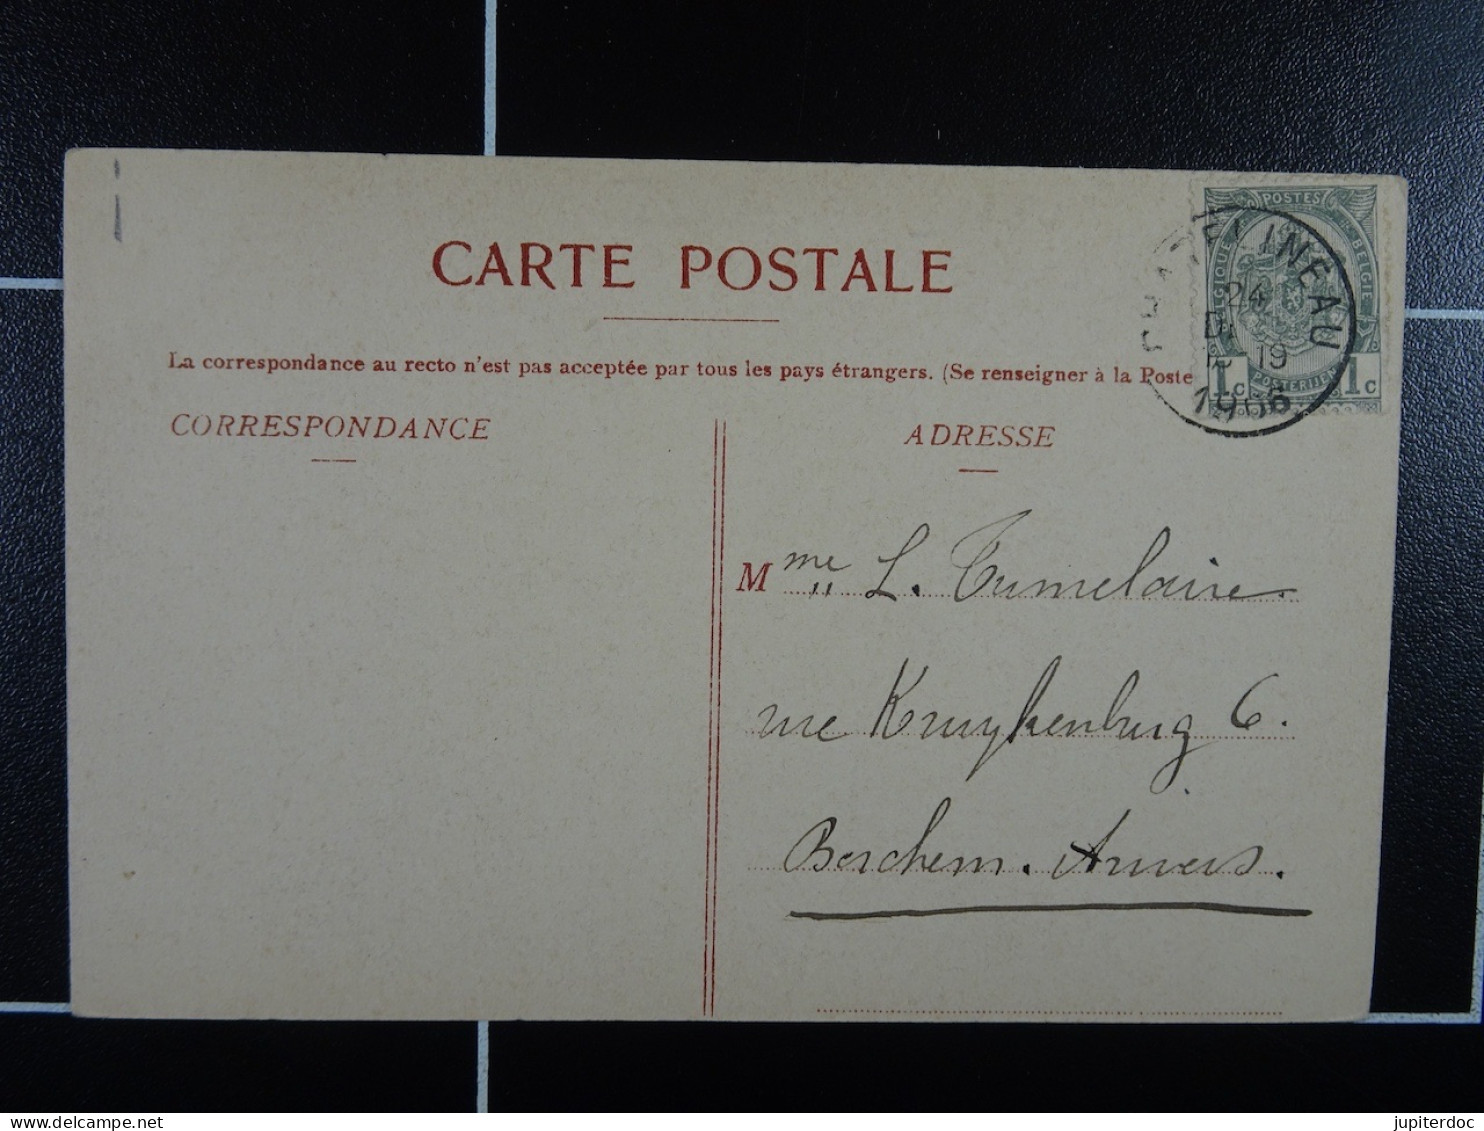 CARTE POSTALE
La correspondance au recto n'est pas acceptée par tous les pays étrangers. (Se renseigner à la Poste
CORRESPONDANCE
ADRESSE
POSTES
BELGIE
POSTERIJEN
1c 1c
CHATELINEAU
24
19
1906
Mme L. Tumelaire.
rue Kruykenburg 6.
Berchem. Anvers.
jupiterdoc